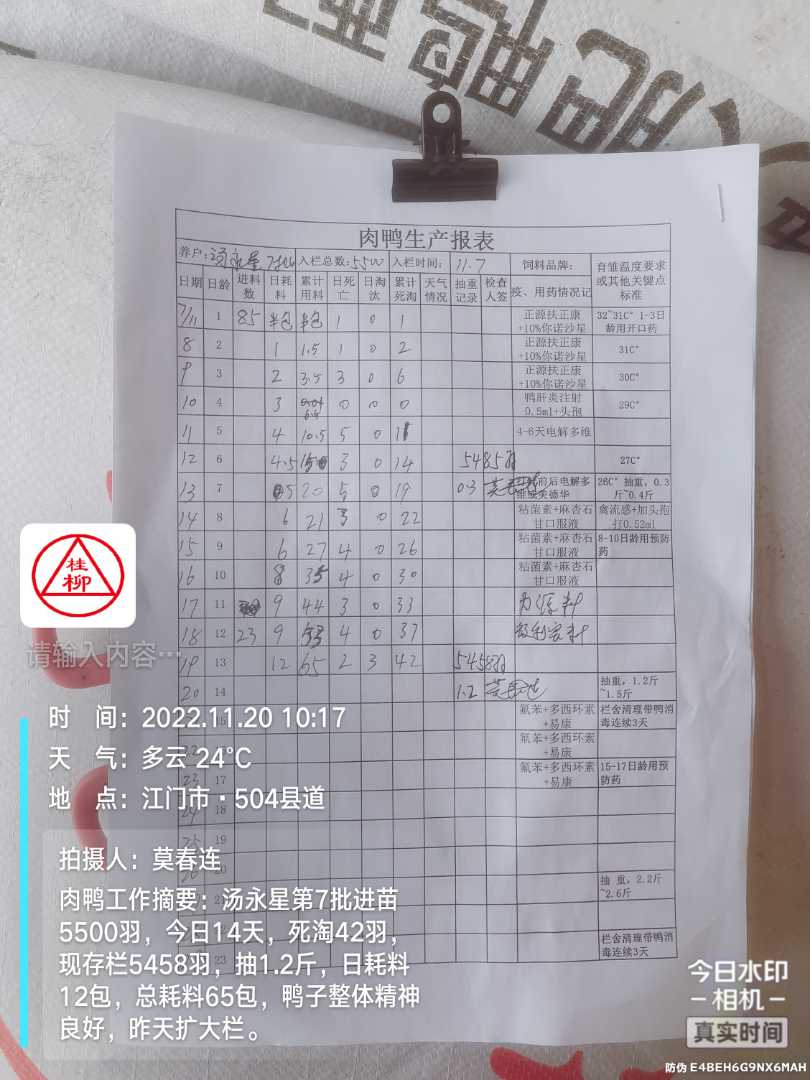 肉鸭生产报表
养户: 汤永星 7批 入栏总数:5500 入栏时间: 11.7 饲料品牌: 育雏温度要求或其他关键点标准
日期 日龄 进料数 日耗料 累计用料 日死亡 日淘汰 累计死淘 天气情况 抽重记录 检查人签 疫、用药情况记
7/11 1 85 半包 半包 1 0 1 正源扶正康+10%你诺沙星 32~31C° 1-3日龄用开口药
8 2 1 1.5 1 0 2 正源扶正康+10%你诺沙星 31C°
9 3 2 3.5 3 0 6 正源扶正康+10%你诺沙星 30C°
10 4 3 0 0 0 鸭肝炎注射0.5ml+头孢 29C°
11 5 4 10.5 5 0 11 4-6天电解多维
12 6 4.5 3 0 14 5485羽 27C°
13 7 5 20 5 0 19 0.3 前后电解多 26C° 抽重,0.3斤~0.4斤
14 8 6 21 3 0 22 粘菌素+麻杏石甘口服液 禽流感+加头孢打0.52ml
15 9 6 27 4 0 26 粘菌素+麻杏石甘口服液 8-10日龄用预防药
16 10 8 35 4 0 30 粘菌素+麻杏石甘口服液
17 11 9 44 3 0 33
18 12 23 9 53 4 0 37
19 13 12 65 2 3 42 5458羽
20 14 1.2 抽重,1.2斤~1.5斤
氟苯+多西环素+易康 栏舍清理带鸭消毒连续3天
氟苯+多西环素+易康
23 17 氟苯+多西环素+易康 15-17日龄用预防药
24 18
25 19
20
21 抽 重,2.2斤~2.6斤
23 栏舍清理带鸭消毒连续3天
桂柳
请输入内容…
时 间:2022.11.20 10:17
天 气:多云 24℃
地 点:江门市·504县道
拍摄人:莫春连
肉鸭工作摘要:汤永星第7批进苗
5500羽,今日14天,死淘42羽,
现存栏5458羽,抽1.2斤,日耗料
12包,总耗料65包,鸭子整体精神
良好,昨天扩大栏。
今日水印
-相机-
真实时间
防伪 E4BEH6G9NX6MAH